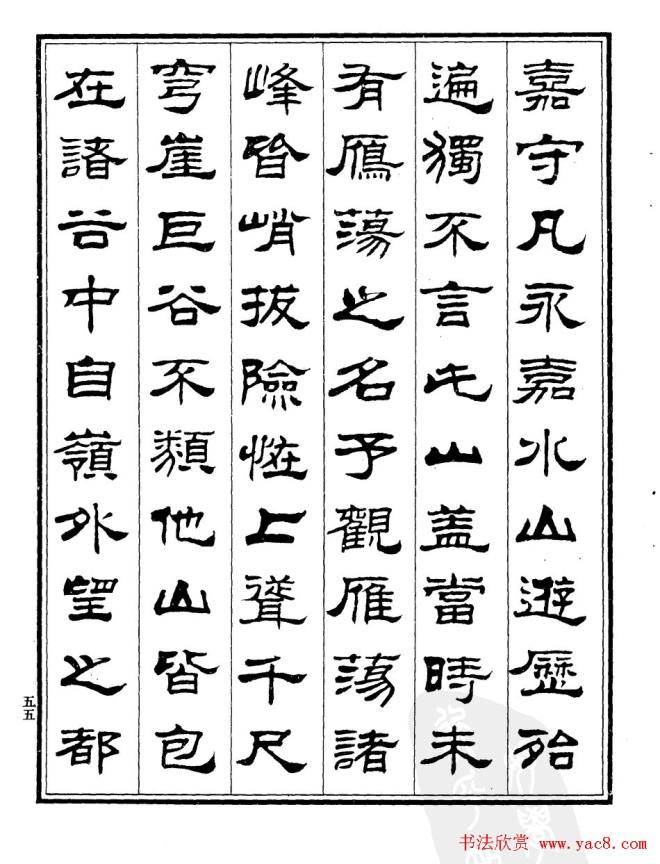 嘉守凡永嘉水山遊歷殆
遍獨不言此山盖當時未
有鴈蕩之名予觀雁蕩諸
峰皆峭拔險恠上聳千尺
穹崖巨谷不類他山皆包
在諸谷中自嶺外望之都
五五
书法欣赏 www.yac8.com